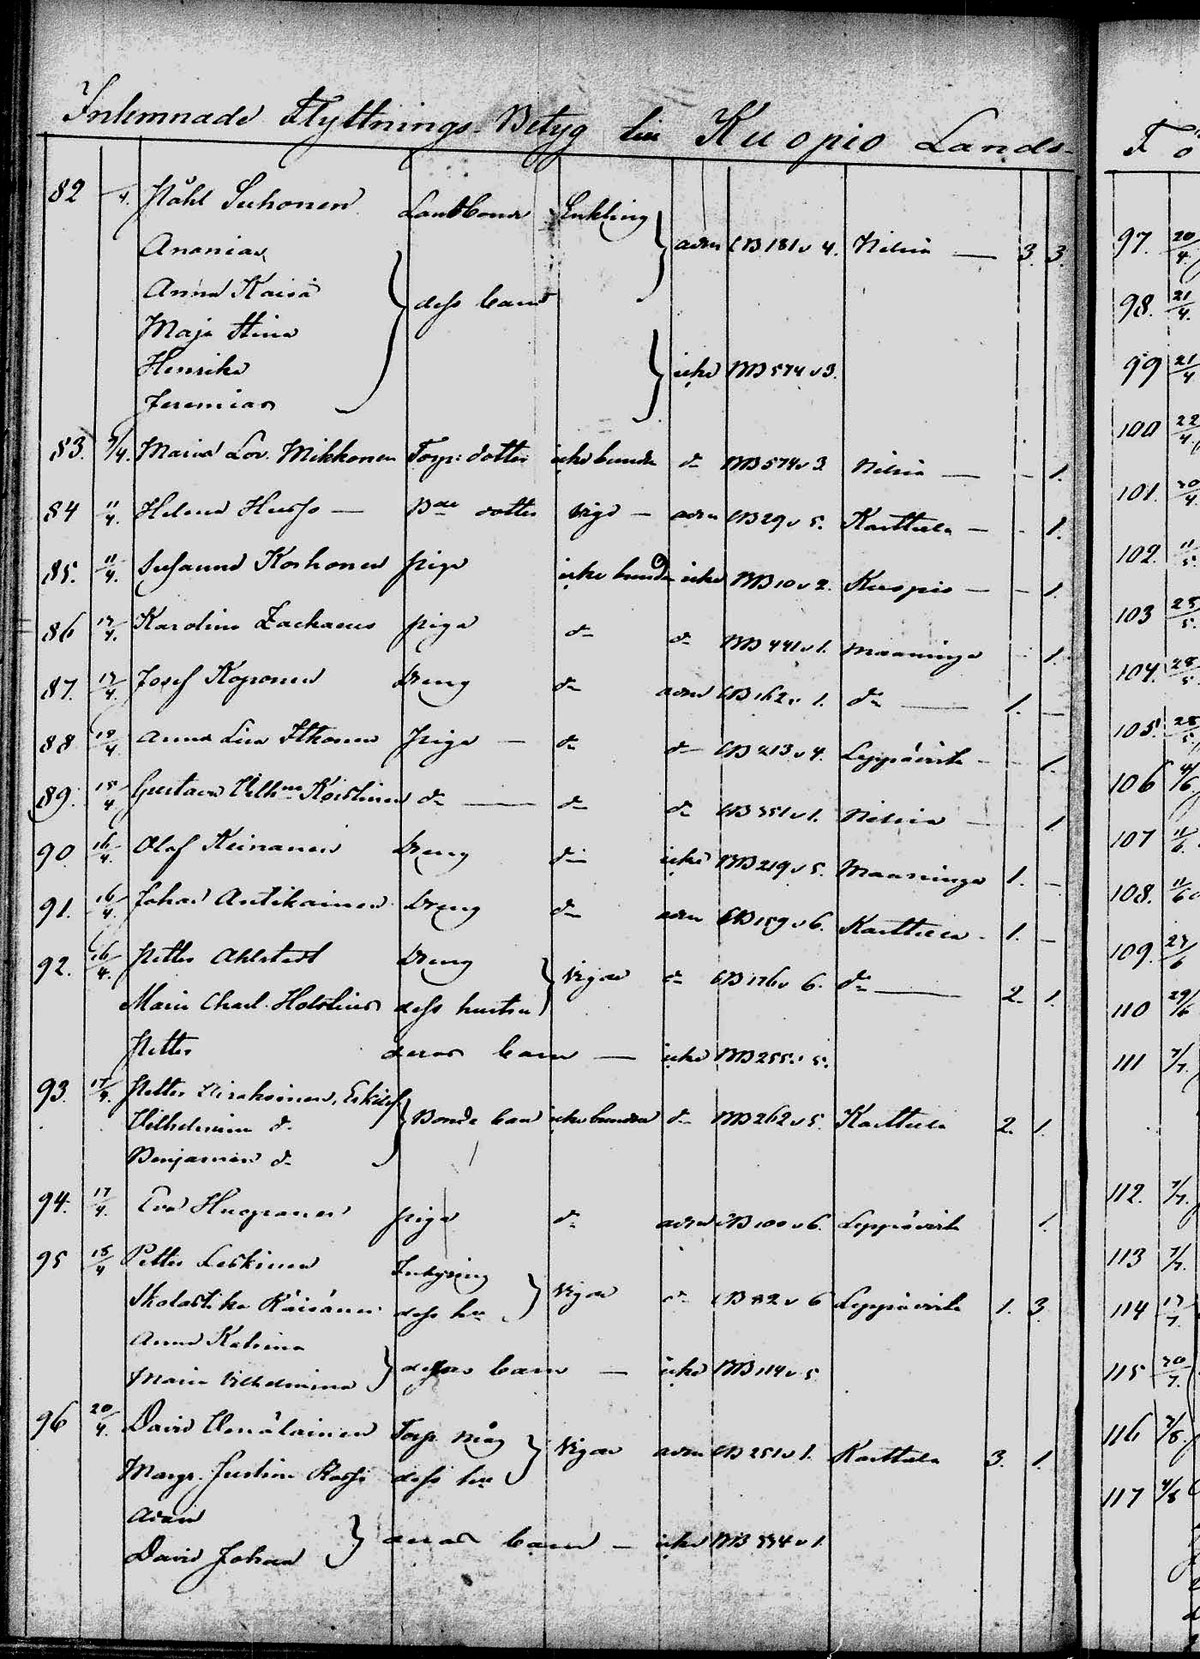 Inlemnade Flyttnings-Betyg till Kuopio Lands-
82 /4. Påhl Suhonen Landbonde Enkling
Ananias även CB 181 v 4. Nilsiä — 3. 3.
Anna Kaisa dess barn
Maja Stina
Henrika icke BB 574 v 3.
Jeremias
83. 9/4. Maria Lov. Mikkonen Torp: dotter icke bunden do BB 574 v 3. Nilsiä — - 1.
84 11/4. Helena Husso — Bde dotter Vigd — även CB 29 v 5. Karttula — - 1.
85. 11/4. Susanna Korhonen piga icke bunden icke BB 10 v 2. Kuopio — - 1.
86 12/4. Karolina Zachaeus piga do do BB 441 v 1. Maaninga - 1.
87. 12/4. Josef Koponen Dreng do även CB 162 v 1. do — 1. —
88 12/4 Anna Lisa Itkonen piga — do do CB 213 v 4. Leppävirta - - 1.
89. 15/4 Gustava Vilhna Koistinen do — do do CB 351 v 1. Nilsiä — 1.
90 16/4. Olof Keinanen Dreng do icke BB 219 v 5. Maaninga 1. —
91. 16/4. Johan Antikainen Dreng do även CB 159 v 6. Karttula - 1. —
92. 16/4. Petter Ahlstedt Dreng Vigde do CB 176 v 6. do — 2. 1.
Maria Charl. Hoffrén dess hustru
Petter deras barn — icke BB 255 v 5.
93. 17/4. Petter Eskil
Vilhelmina do Bonde barn icke bundna do BB 262 v 5. Karttula 2. 1.
Benjamin do
94. 17/4. Eva Huoponen piga do även CB 100 v 6. Leppävirta 1.
95 18/4 Petter Leskinen Inhysing
Skolastika Räisänen dess hu Vigde do CB 82 v 6 Leppävirta 1. 3.
Anna Katrina
Maria Vilhelmina deras barn — icke BB 114 v 5
96 20/4. David Venäläinen Torp. måg Vigde även CB 251 v 1. Karttula 3. 1.
Margr. Justina Rossi dess hu
Adam
David Johan deras barn — icke BB 334 v 1.
Fö
97. 20/4.
98. 21/4.
99 21/4
100 22/4.
101. 30/4
102. 11/5.
103 25/5.
104. 28/5.
105. 28/5.
106 4/6
107 11/6.
108. 11/6
109. 27/6
110 29/6
111 7/7.
112. 7/7.
113 7/7.
114 17/7.
115 20/7.
116 2/8
117 4/8